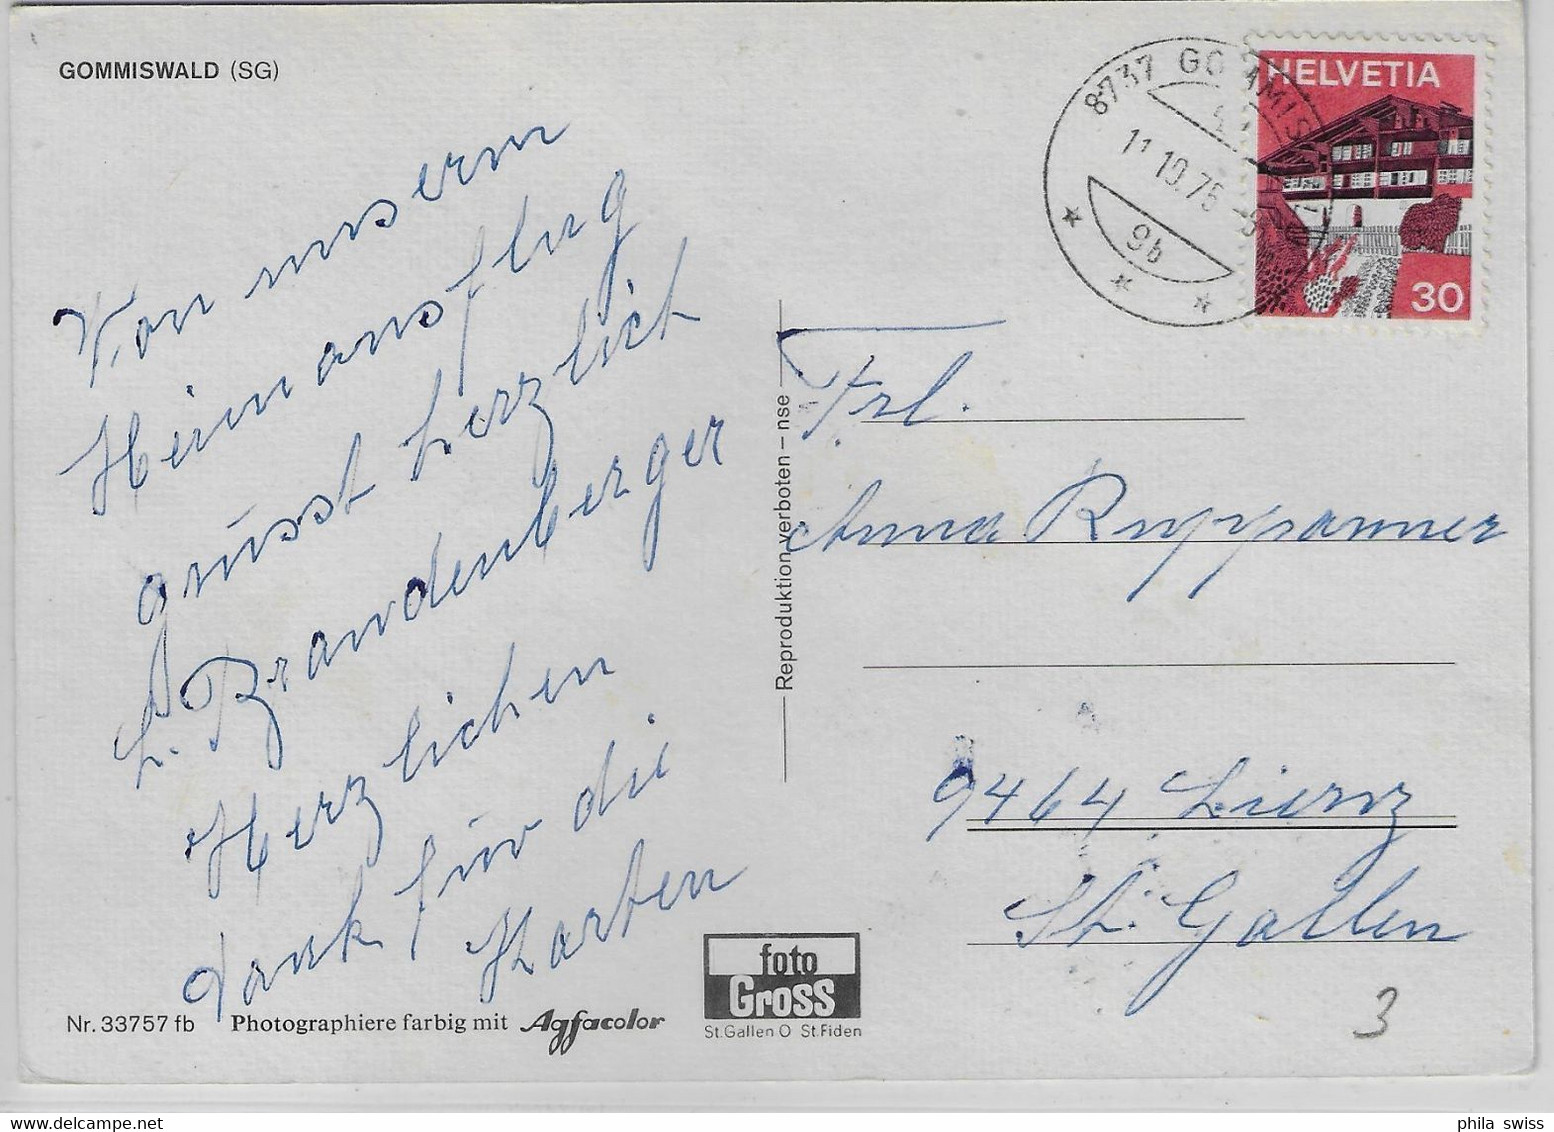 GOMMISWALD (SG)
Von unserm
Heimausflug
grüsst herzlich
L. Brandenberger
Herzlichen
dank für die
Karten
Nr. 33757 fb Photographiere farbig mit Agfacolor
foto
Gross
St.Gallen O St.Fiden
Reproduktion verboten – nse
8737 GOMMISWALD
11.10.75
9b
HELVETIA
30
Frl.
Anna Ruppanner
9464 Lienz
St. Gallen
3
phila swiss